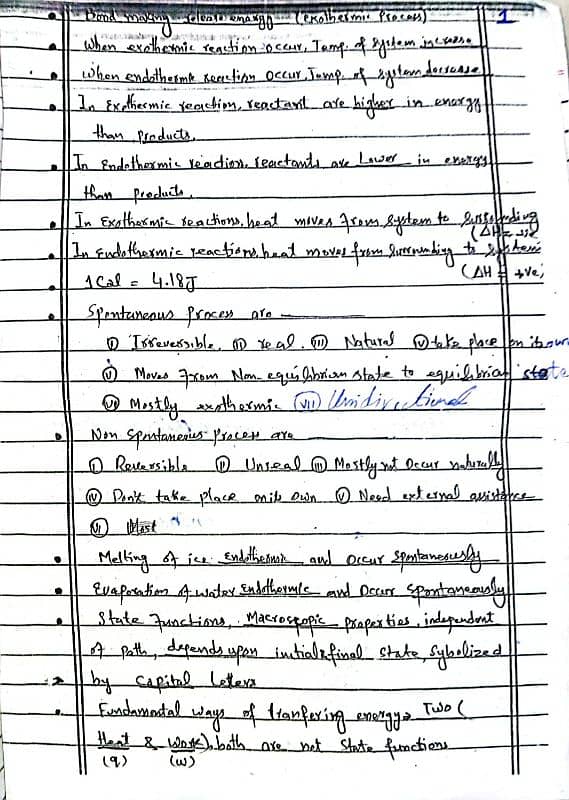 1
Bond making release energy (Exothermic Process)
When exothermic reaction occur, Temp. of system increase
When endothermic reaction occur, Temp. of system decrease
In Exothermic reaction, reactant are higher in energy
than products.
In Endothermic reaction, reactants are Lower in energy
than products.
In Exothermic reactions, heat moves from system to surrounding
(ΔH = -ve
In Endothermic reactions, heat moves from surrounding to system
(ΔH = +ve)
1 Cal = 4.18J
Spontaneous Process are
(i) Irreversible, (ii) real. (iii) Natural (iv) take place on its own
(v) Moves From Non-equilibrium state to equilibrium state
(vi) Mostly exothermic (vii) Unidirectional
Non Spontaneous Process are
(i) Reversible (ii) Unreal (iii) Mostly not Occur naturally
(iv) Don't take place on its own (v) Need external assistance
(vi) Most
Melting of ice Endothermic and Occur Spontaneously
Evaporation of water Endothermic and Occur Spontaneously
State Functions, Macroscopic properties, independent
of Path, depends upon initial & final State, Sybolized
by Capital Letters
Fundamental ways of tranfering energy → Two (
Heat & Work), both are not State functions
(q) (w)